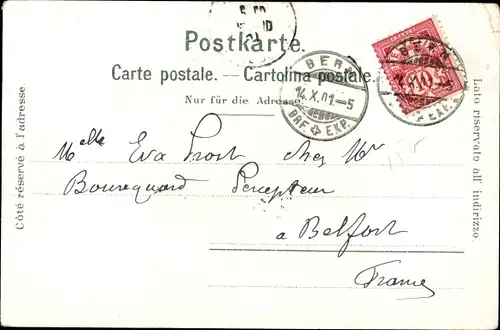 Postkarte.
Carte postale. — Cartolina postale.
Nur für die Adresse.
BERN
14.X.01.-5
BRF. EXP.
BERN
10
EXP.
Côté réservé à l'adresse.
Lato riservato all' indirizzo.
Melle Eva Prost chez Mr
Bourquard Percepteur
a Belfort
France